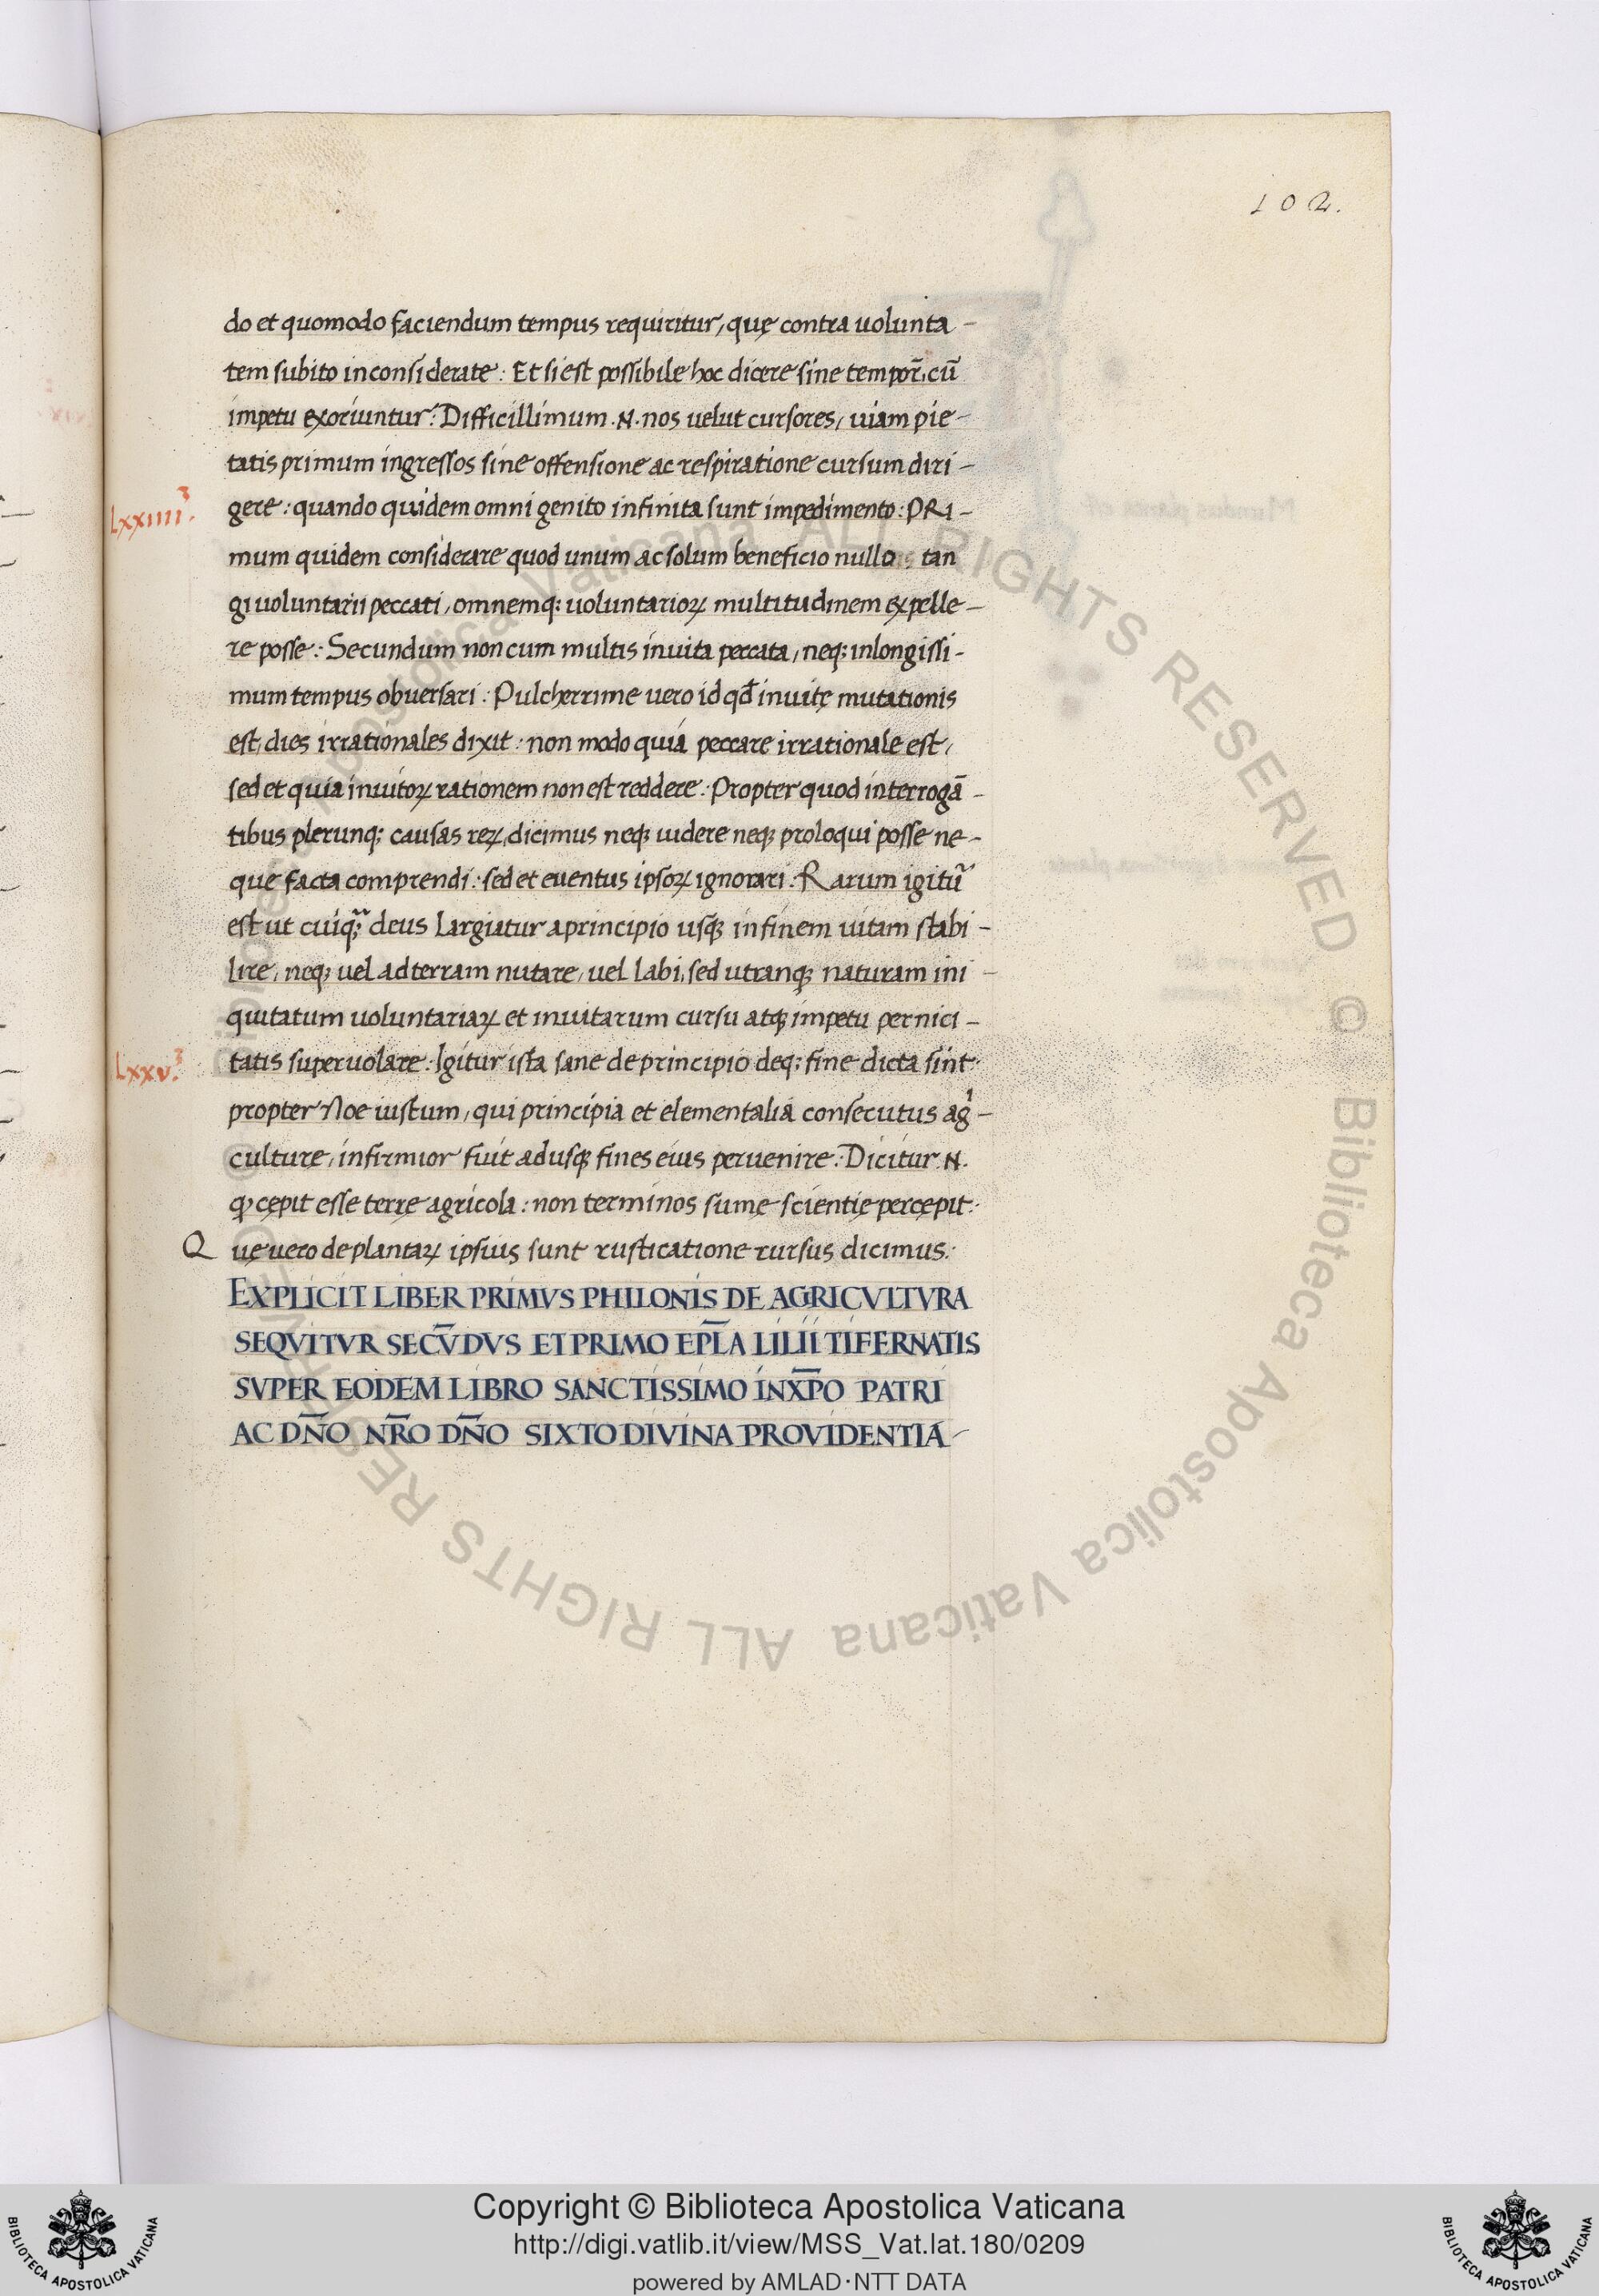 102.
do et quomodo faciendum tempus requiritur, quę contra uolunta-
tem subito inconsiderate: Et si est possibile hoc dicere sine tempor̃, cũ
impetu exoriuntur: Difficillimum .N. nos uelut cursores, uiam pie-
tatis primum ingressos sine offensione ac respiratione cursum diri-
Lxxiiii.
gere: quando quidem omni genito infinita sunt impedimento: PRI-
mum quidem considerare quod unum ac solum beneficio nullo tan
gi uoluntarii peccati, omnemq; uoluntarioꝝ multitudinem expelle-
re posse: Secundum non cum multis inuita peccata, neq; in longissi-
mum tempus obuersari: Pulcherrime uero id qd̃ inuitę mutationis
est, dies irrationales dixit: non modo quia peccare irrationale est,
sed et quia inuitoꝝ rationem non est reddere: Propter quod interrogã-
tibus plerunq; causas reꝝ, dicimus neq; uidere neq; proloqui posse ne-
que facta comprendi: sed et euentus ipsoꝝ ignorari: Rarum igitũ
est ut cuiq; deus largiatur a principio usq; in finem uitam stabi-
lire, neq; uel ad terram nutare, uel labi, sed utranq; naturam ini-
quitatum uoluntariaꝝ et inuitarum cursu atq; impetu pernici-
Lxxv.
tatis superuolare: Igitur ista sane de principio deq; fine dicta sint:
propter Noe iustum, qui principia et elementalia consecutus agⁱ-
culture, infirmior fuit adusq; fines eius peruenire: Dicitur .N.
ꝙ cępit esse terrę agricola: non terminos sumę scientię percepit:
Quę uero de plantaꝝ ipsius sunt rusticatione rursus dicimus:
EXPLICIT LIBER PRIMVS PHILONIS DE AGRICVLTVRA
SEQVITVR SECV̄DVS ET PRIMO EPL̄A LILII TIFERNATIS
SVPER EODEM LIBRO SANCTISSIMO IN XP̄O PATRI
AC DN̄O NR̄O DN̄O SIXTO DIVINA PROVIDENTIA
© Biblioteca Apostolica Vaticana ALL RIGHTS RESERVED © Biblioteca Apostolica Vaticana ALL RIGHTS RESERVED
BIBLIOTECA APOSTOLICA VATICANA
Copyright © Biblioteca Apostolica Vaticana
http://digi.vatlib.it/view/MSS_Vat.lat.180/0209
powered by AMLAD·NTT DATA
BIBLIOTECA APOSTOLICA VATICANA